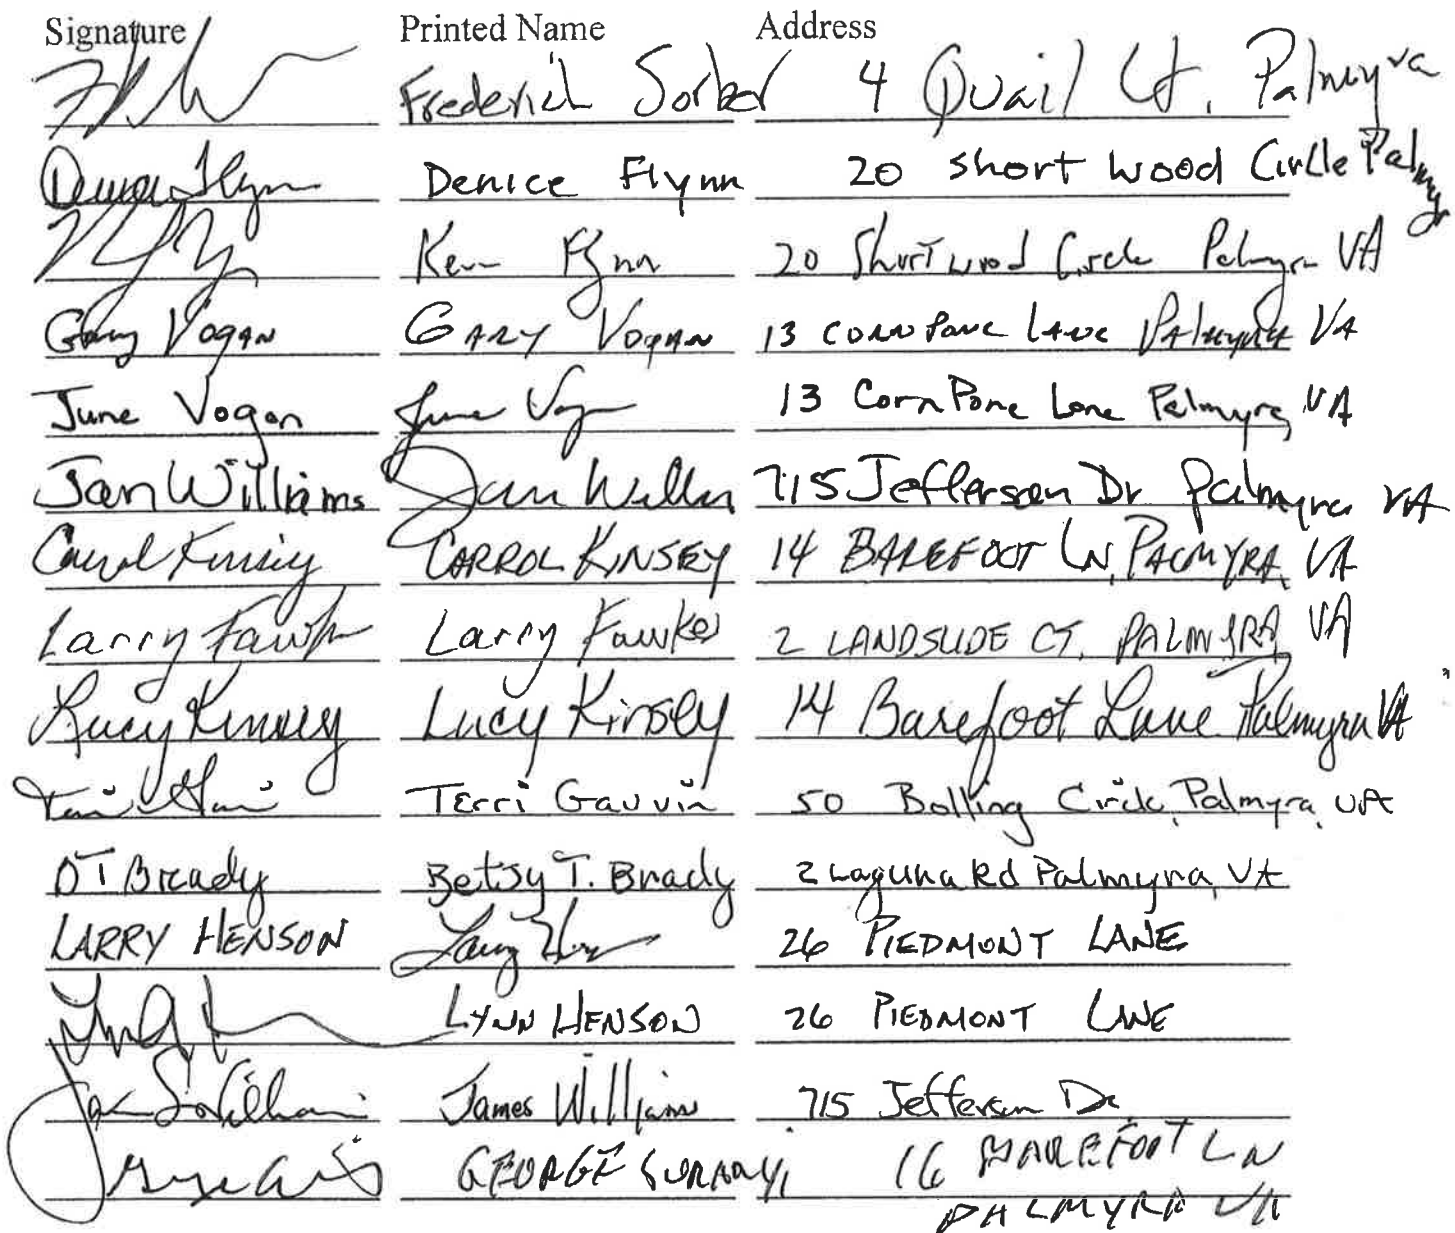 Signature Printed Name Address
Frederick Sorber 4 Quail Ct. Palmyra
Denice Flynn Denice Flynn 20 Short Wood Circle Palmyra
Flynn 20 Shortwood Circle Palmyra VA
Gary Vogan GARY VOGAN 13 CORN PONE LANE PALMYRA VA
June Vogan June Vogan 13 Corn Pone Lane Palmyra, VA
Jan Williams Jan Williams 715 Jefferson Dr Palmyra VA
Carrol Kinsey CARROL KINSEY 14 BAREFOOT LN, PALMYRA, VA
Larry Fawkes Larry Fawkes 2 LANDSLIDE CT. PALMYRA, VA
Lucy Kinsey Lucy Kinsey 14 Barefoot Lane Palmyra VA
Terri Gauvin 50 Bolling Circle, Palmyra, VA
BT Brady Betsy T. Brady 2 Laguna Rd Palmyra, VA
LARRY HENSON Larry 26 PIEDMONT LANE
LYNN HENSON 26 PIEDMONT LANE
James Williams 715 Jefferson Dr.
GEORGE 16 BAREFOOT LN
PALMYRA VA